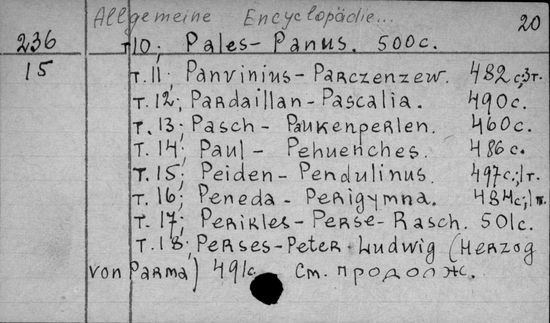 Allgemeine Encyclopädie... 20
236 т.10; Pales-Panus. 500с.
15 т.11; Panvinius-Parczenzew. 482с,3т.
т.12; Pardaillan-Pascalia. 490с.
т.13; Pasch - Paukenperlen. 460с.
т.14; Paul - Pehuenches. 486с.
т.15; Peiden-Pendulinus. 497с.;1т.
т.16; Peneda-Perigymna. 484с;1т.
т.17; Perikles-Perse-Rasch. 501с.
т.18; Perses-Peter Ludwig (Herzog
von Parma) 491с См. продолж.